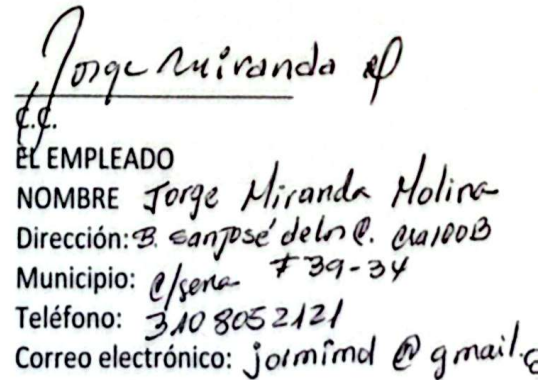 Jorge Miranda
C.C.
EL EMPLEADO
NOMBRE Jorge Miranda Molina
Dirección: B. San José de los C. Cra 100B
Municipio: C/gena # 39-34
Teléfono: 310 8052121
Correo electrónico: jormimd @ gmail.c